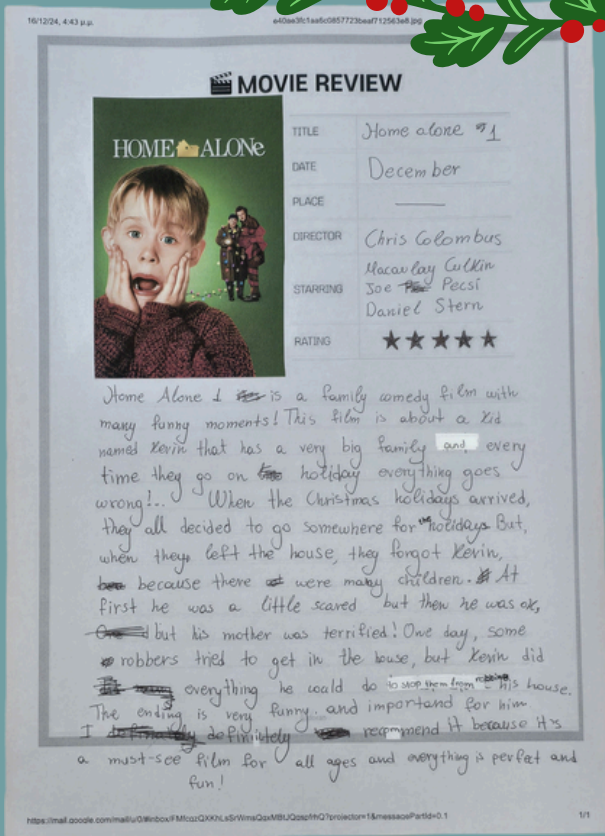 16/12/24, 4:43 μ.μ.
e40ae3fc1aa6c0857723beaf712563e8.jpg
MOVIE REVIEW
HOME ALONe
TITLE Home alone #1
DATE December
PLACE
DIRECTOR Chris Colombus
STARRING Macaulay Culkin
Joe Pecsi
Daniel Stern
RATING ★★★★★
Home Alone 1 is a family comedy film with
many funny moments! This film is about a kid
named Kevin that has a very big family and every
time they go on holiday everything goes
wrong!.. When the Christmas holidays arrived,
they all decided to go somewhere for the holidays But,
when they left the house, they forgot Kevin,
because there were many children. At
first he was a little scared but then he was ok,
but his mother was terrified! One day, some
robbers tried to get in the house, but Kevin did
everything he could do to stop them from robbing his house.
The ending is very funny and importand for him.
I definitely recommend it because it's
a must-see film for all ages and everything is perfect and
fun!
1/1